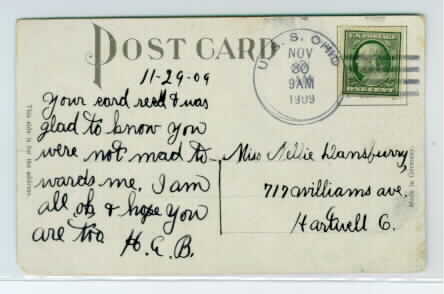 POST CARD
U.S.S. OHIO
NOV
30
9AM
1909
U.S. POSTAGE
11-29-09
Your card recd & was
glad to know you
were not mad to-
wards me. I am
all oh & hope you
are too H.E.B.
Miss Nellie Dansburry,
717 Williams ave.
Hartwell O.
This side is for the address.
Made in Germany.